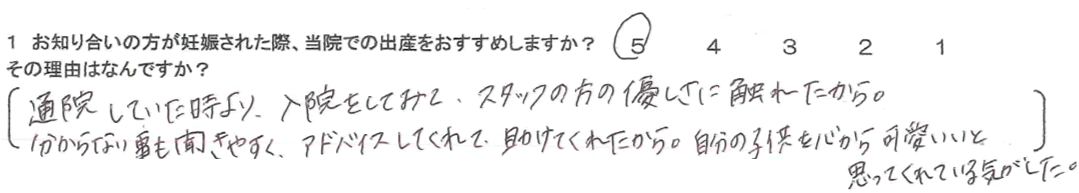 1 お知り合いの方が妊娠された際、当院での出産をおすすめしますか? 5 4 3 2 1
その理由はなんですか?
通院していた時より、入院をしてみて、スタッフの方の優しさに触れたから。
分からない事も聞きやすく、アドバイスしてくれて、助けてくれたから。自分の子供を心から可愛いいと
思ってくれている気がした。